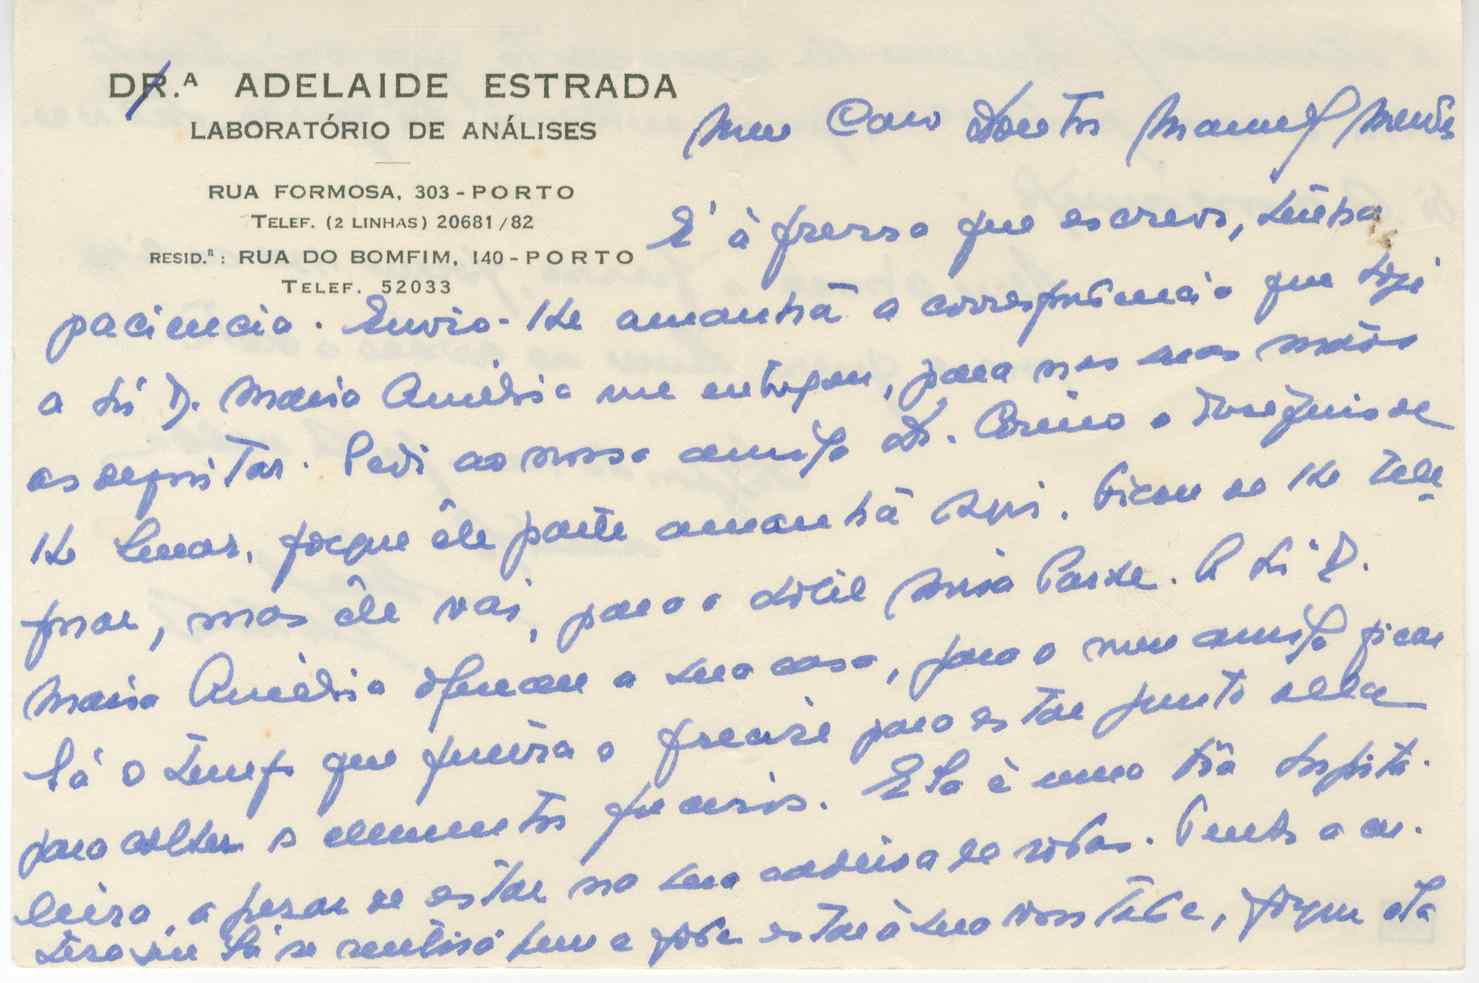 DR.ª ADELAIDE ESTRADA
LABORATÓRIO DE ANÁLISES
RUA FORMOSA, 303 - PORTO
TELEF. (2 LINHAS) 20681/82
RESID.ª: RUA DO BOMFIM, 140 - PORTO
TELEF. 52033
Meu Caro Doutor Manuel Mendes
É à pressa que escrevo, tenha
paciencia. Envio-lhe amanhã a correspondência que hoje
a Sr.ª D. Maria Amélia me entregou, para nas suas mãos
as depositar. Pedi ao nosso amigo Dr. o de
lhe levar, porque êle parte amanhã . Ficou de lhe tele-
fonar, mas êle vai, para o Hotel Miraparque. A Sr.ª D.
Maria Amélia oferece a sua casa, para o meu amigo ficar
lá o tempo que queira e precise para estar junto dela
para colher os elementos precisos. Ela é uma bôa hospita-
leira, apesar de estar na sua cadeira de rodas. Pensa a ca-
lá se sentirá bem e pode estar à sua vontade, porque ela